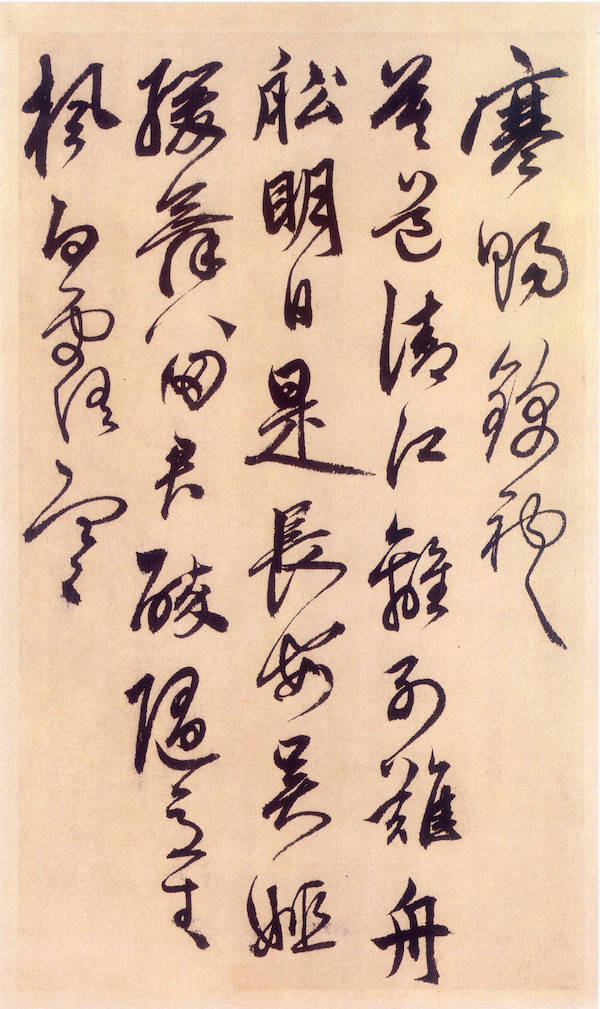 寒賜錦袍
莫道清江離別難舟
船明日是長安吳姬
緩舞留君醉隨意青
楓白露寒